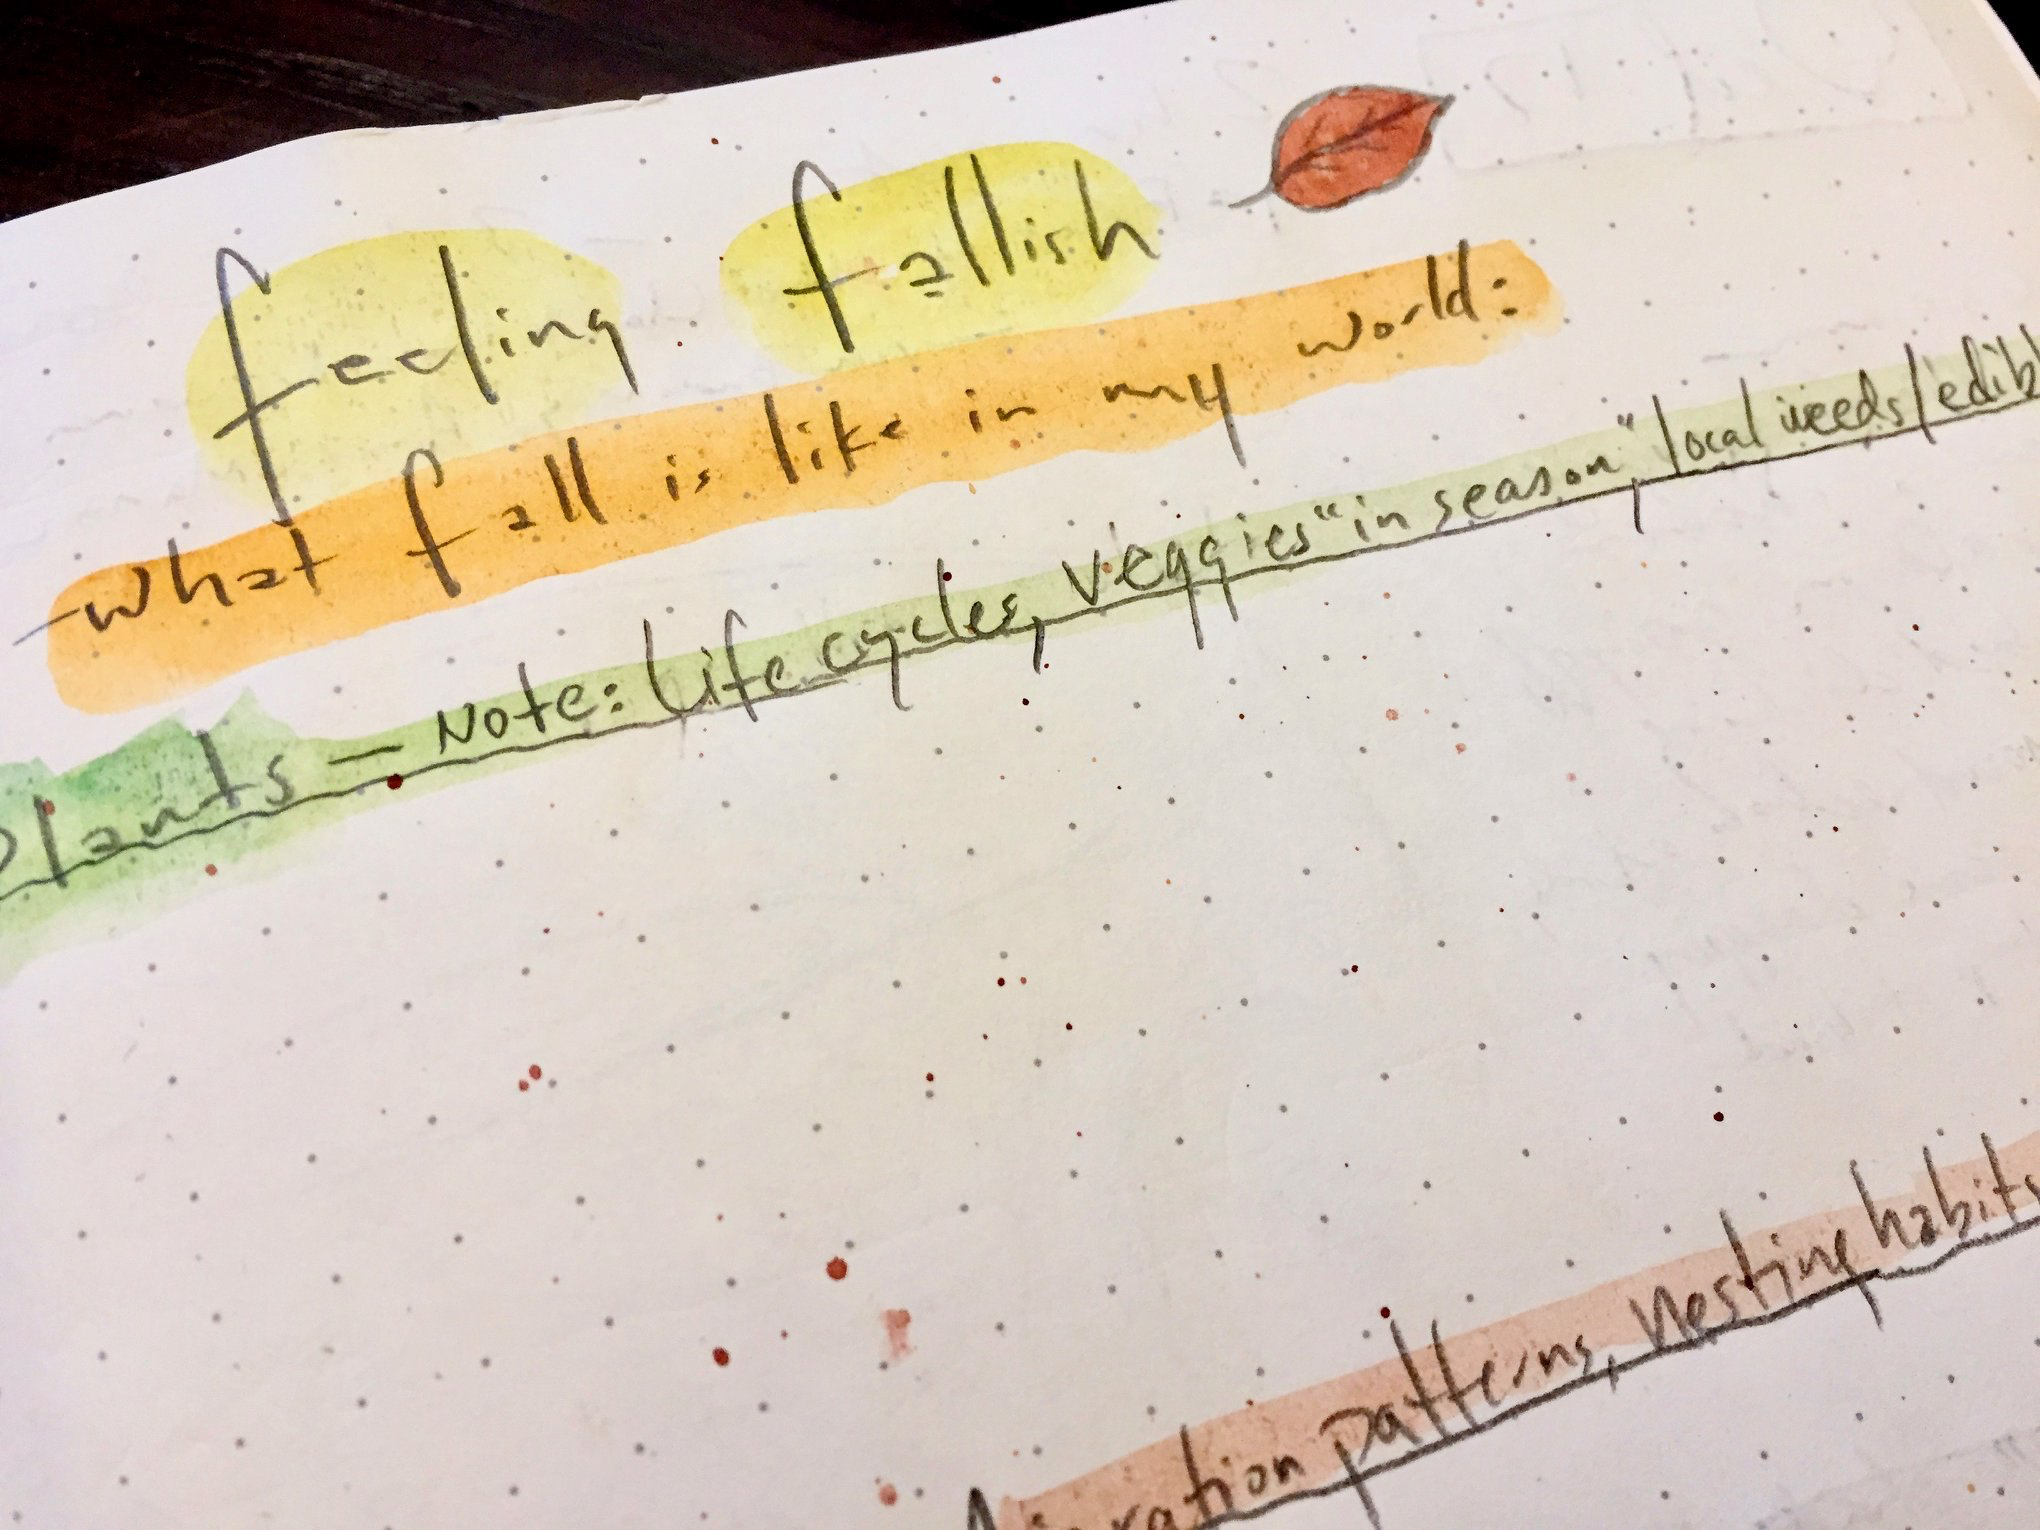 feeling fallish
- what fall is like in my world:
plants — Note: Life cycles, veggies "in season", local weeds/edib
Migration patterns, nesting habits